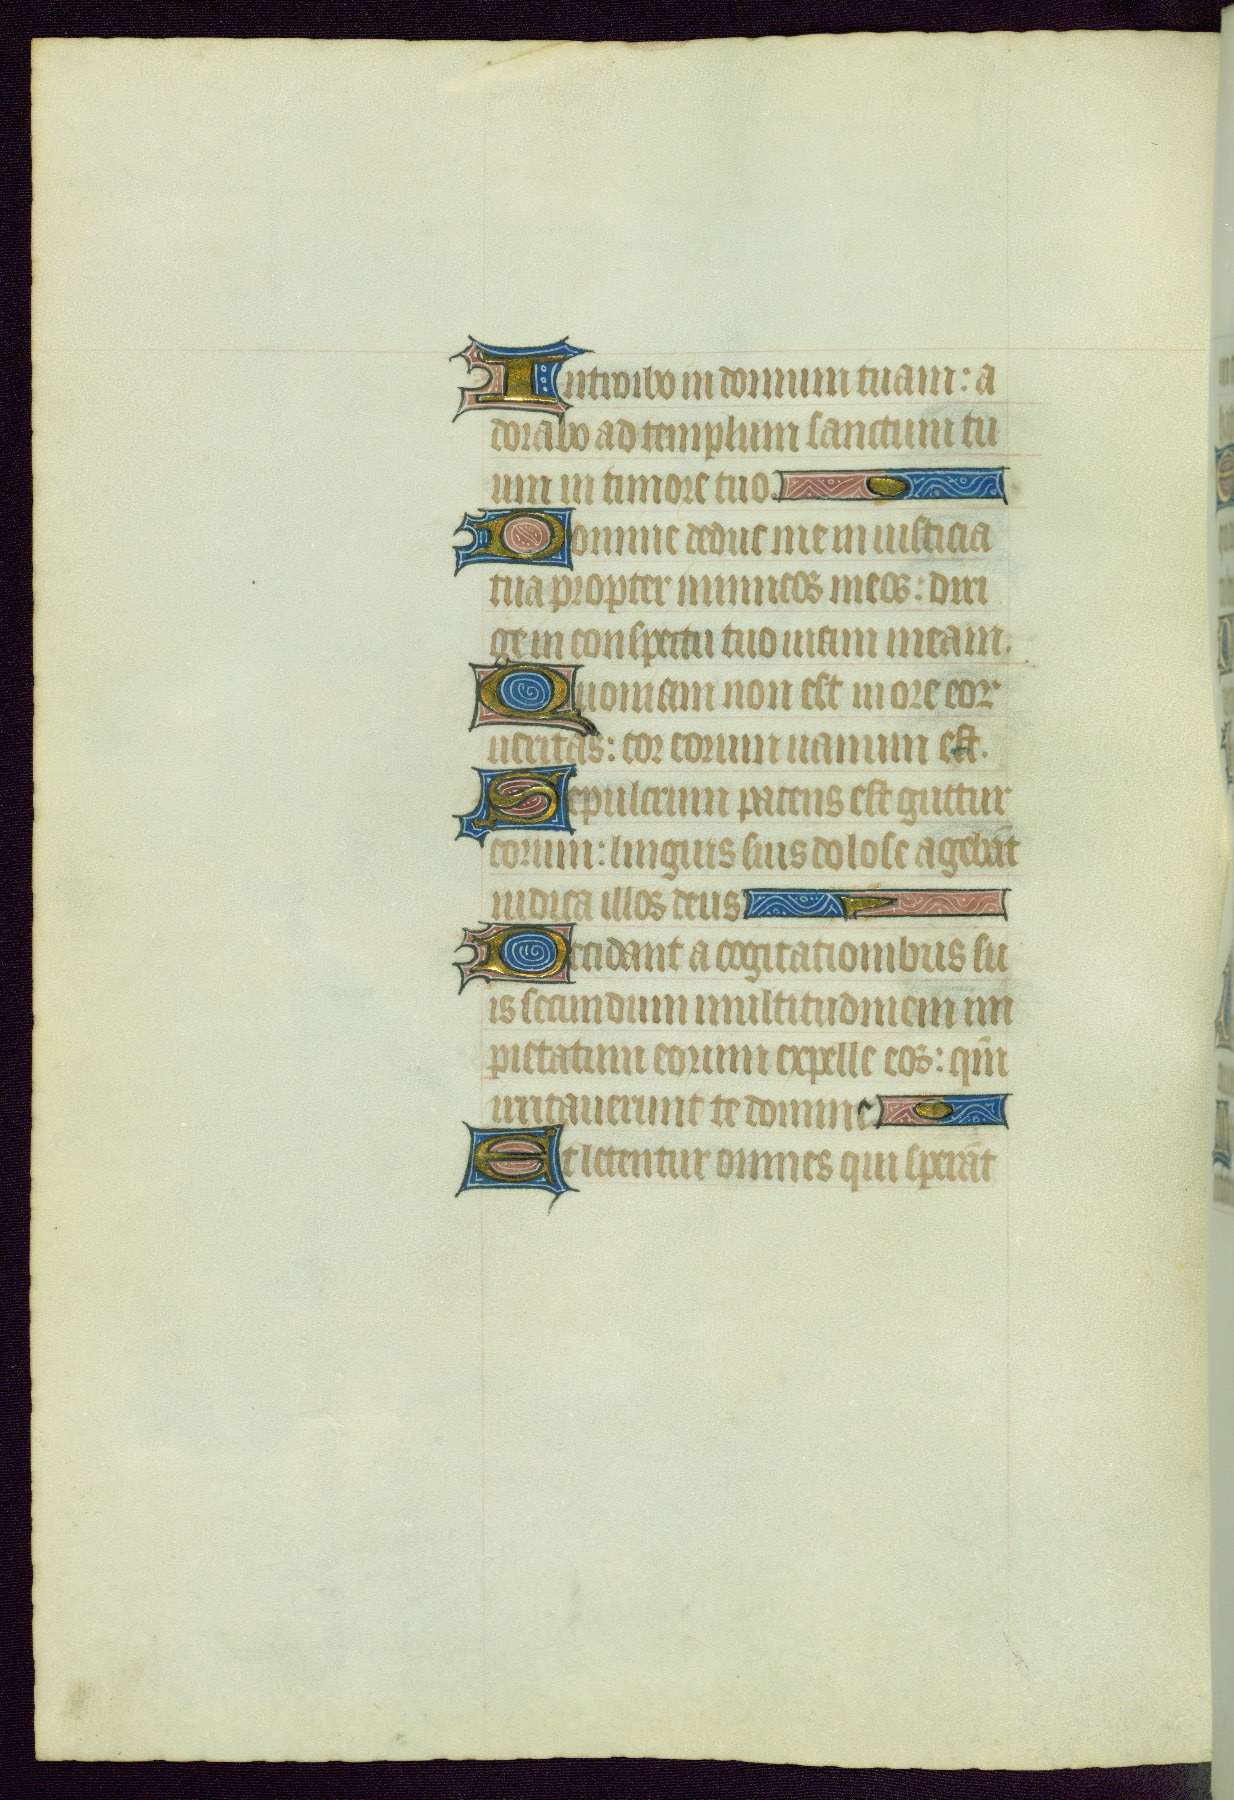 Introibo in domum tuam: a
dorabo ad templum sanctum tu
um in timore tuo.
Domine deduc me in iusticia
tua propter inimicos meos: diri
ge in conspectu tuo uitam meam.
Quoniam non est in ore eor
ueritas: cor eorum uanum est.
Sepulcrum patens est guttur
eorum: linguis suis dolose agebāt
iudica illos deus
Decidant a cogitationibus su
is secundum multitudinem im
pietatum eorum expelle eos: qm̄
irritauerunt te domine
Et letentur omnes qui sperāt